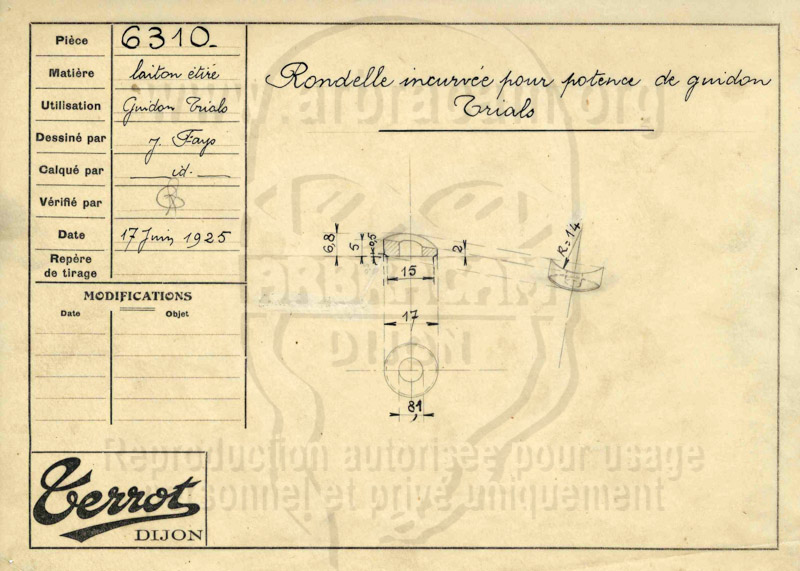 Pièce 6310_
Matière laiton étiré
Utilisation Guidon Trials
Dessiné par J. Fays
Calqué par id.
Vérifié par
Date 17 Juin 1925
Repère
de tirage
MODIFICATIONS
Date Objet
Rondelle incurvée pour potence de guidon
Trials
6,8
5
0,5
2
15
17
81
R=14
Terrot
DIJON
www.arbracam.org
ARBRACAM
DIJON
Reproduction autorisée pour usage
personnel et privé uniquement